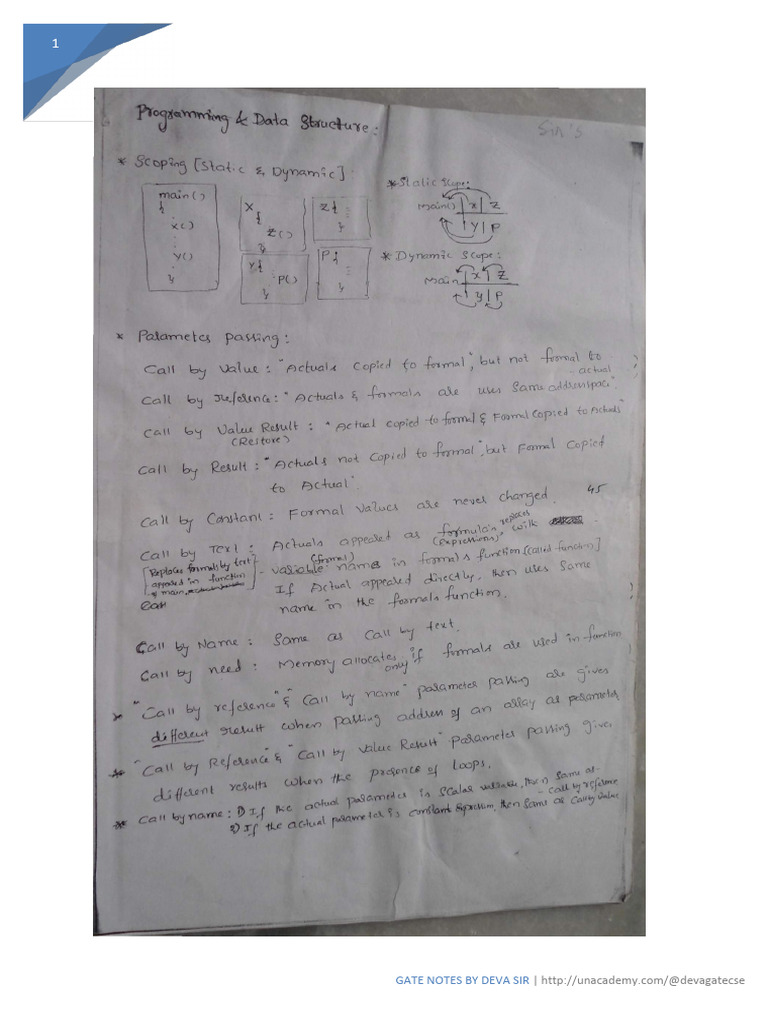 1
Programming & Data Structure:
Sir's
* Scoping [Static & Dynamic]:
main()
{
x()
y()
}
X
{
Z()
}
Z{
}
Y{
P()
}
P{
}
* Static Scope:
Main() | X | Z
Y | P
* Dynamic Scope:
Main | X | Z
Y | P
* Parameter passing:
Call by Value: "Actuals copied to formal", but not formal to
actual
Call by Reference: "Actuals & formals are uses same addresspace"
Call by Value Result: "Actual copied to formal & Formal copied to Actuals"
(Restore)
Call by Result: "Actuals not copied to formal", but Formal copied
to Actual".
Call by Constant: Formal values are never changed. 45
Call by Text: Actuals appeared as formula in replaces with
(expressions)
[Replaces formals by text (formal)
appeared in function - variable names in formal's function [called function]
of main,
If Actual appeared directly, then uses same
name in the formals function.
Call by Name: Same as Call by text.
Call by need: Memory allocates only if formals are used in function
* "Call by reference" & "Call by name" parameter passing are gives
different result when passing address of an array as parameter
* "Call by Reference" & "Call by Value Result" parameter passing give,
different results when the presence of loops.
* Call by name: 1) If the actual parameter is scalar variable, then same as
- call by reference
2) If the actual parameter is constant expression, then same as Call by Value
GATE NOTES BY DEVA SIR | http://unacademy.com/@devagatecse